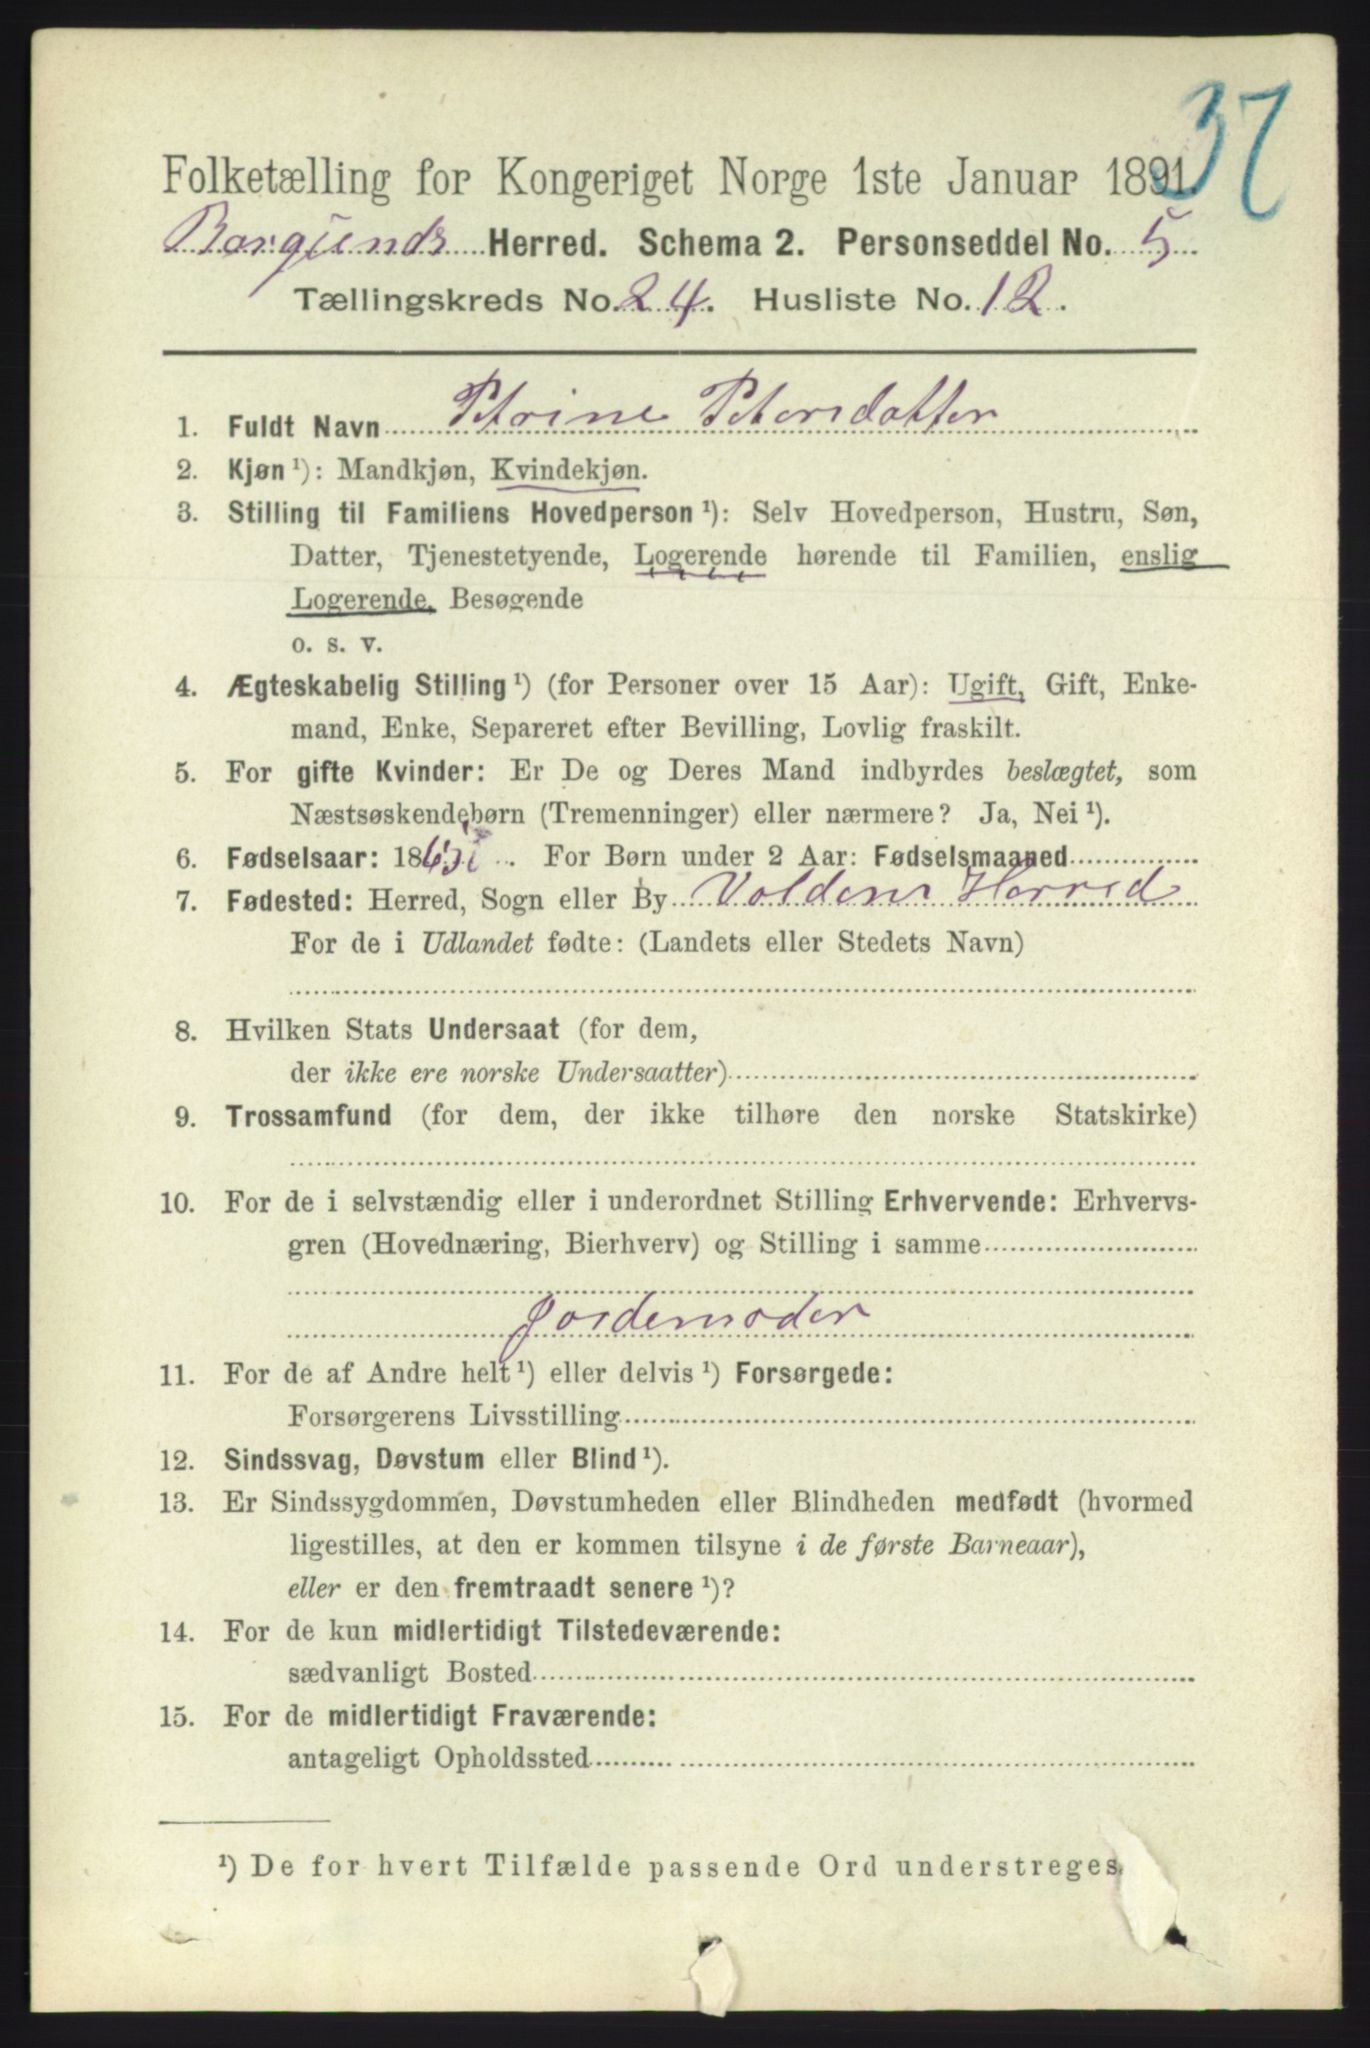 37
Folketælling for Kongeriget Norge 1ste Januar 1891.
Borgunds Herred. Schema 2. Personseddel No. 5
Tællingskreds No. 24. Husliste No. 12.
1. Fuldt Navn Petrine Petersdatter
2. Kjøn ¹): Mandkjøn, Kvindekjøn.
3. Stilling til Familiens Hovedperson ¹): Selv Hovedperson, Hustru, Søn,
Datter, Tjenestetyende, Logerende hørende til Familien, enslig
Logerende, Besøgende
o. s. v.
4. Ægteskabelig Stilling ¹) (for Personer over 15 Aar): Ugift, Gift, Enke-
mand, Enke, Separeret efter Bevilling, Lovlig fraskilt.
5. For gifte Kvinder: Er De og Deres Mand indbyrdes beslægtet, som
Næstsøskendebørn (Tremenninger) eller nærmere? Ja, Nei ¹).
6. Fødselsaar: 18 For Børn under 2 Aar: Fødselsmaaned
7. Fødested: Herred, Sogn eller By Voldens Herred
For de i Udlandet fødte: (Landets eller Stedets Navn)
8. Hvilken Stats Undersaat (for dem,
der ikke ere norske Undersaatter)
9. Trossamfund (for dem, der ikke tilhøre den norske Statskirke)
10. For de i selvstændig eller i underordnet Stilling Erhvervende: Erhvervs-
gren (Hovednæring, Bierhverv) og Stilling i samme
Jordemoder
11. For de af Andre helt ¹) eller delvis ¹) Forsørgede:
Forsørgerens Livsstilling
12. Sindssvag, Døvstum eller Blind ¹).
13. Er Sindssygdommen, Døvstumheden eller Blindheden medfødt (hvormed
ligestilles, at den er kommen tilsyne i de første Barneaar),
eller er den fremtraadt senere ¹)?
14. For de kun midlertidigt Tilstedeværende:
sædvanligt Bosted
15. For de midlertidigt Fraværende:
antageligt Opholdssted
¹) De for hvert Tilfælde passende Ord understreges.